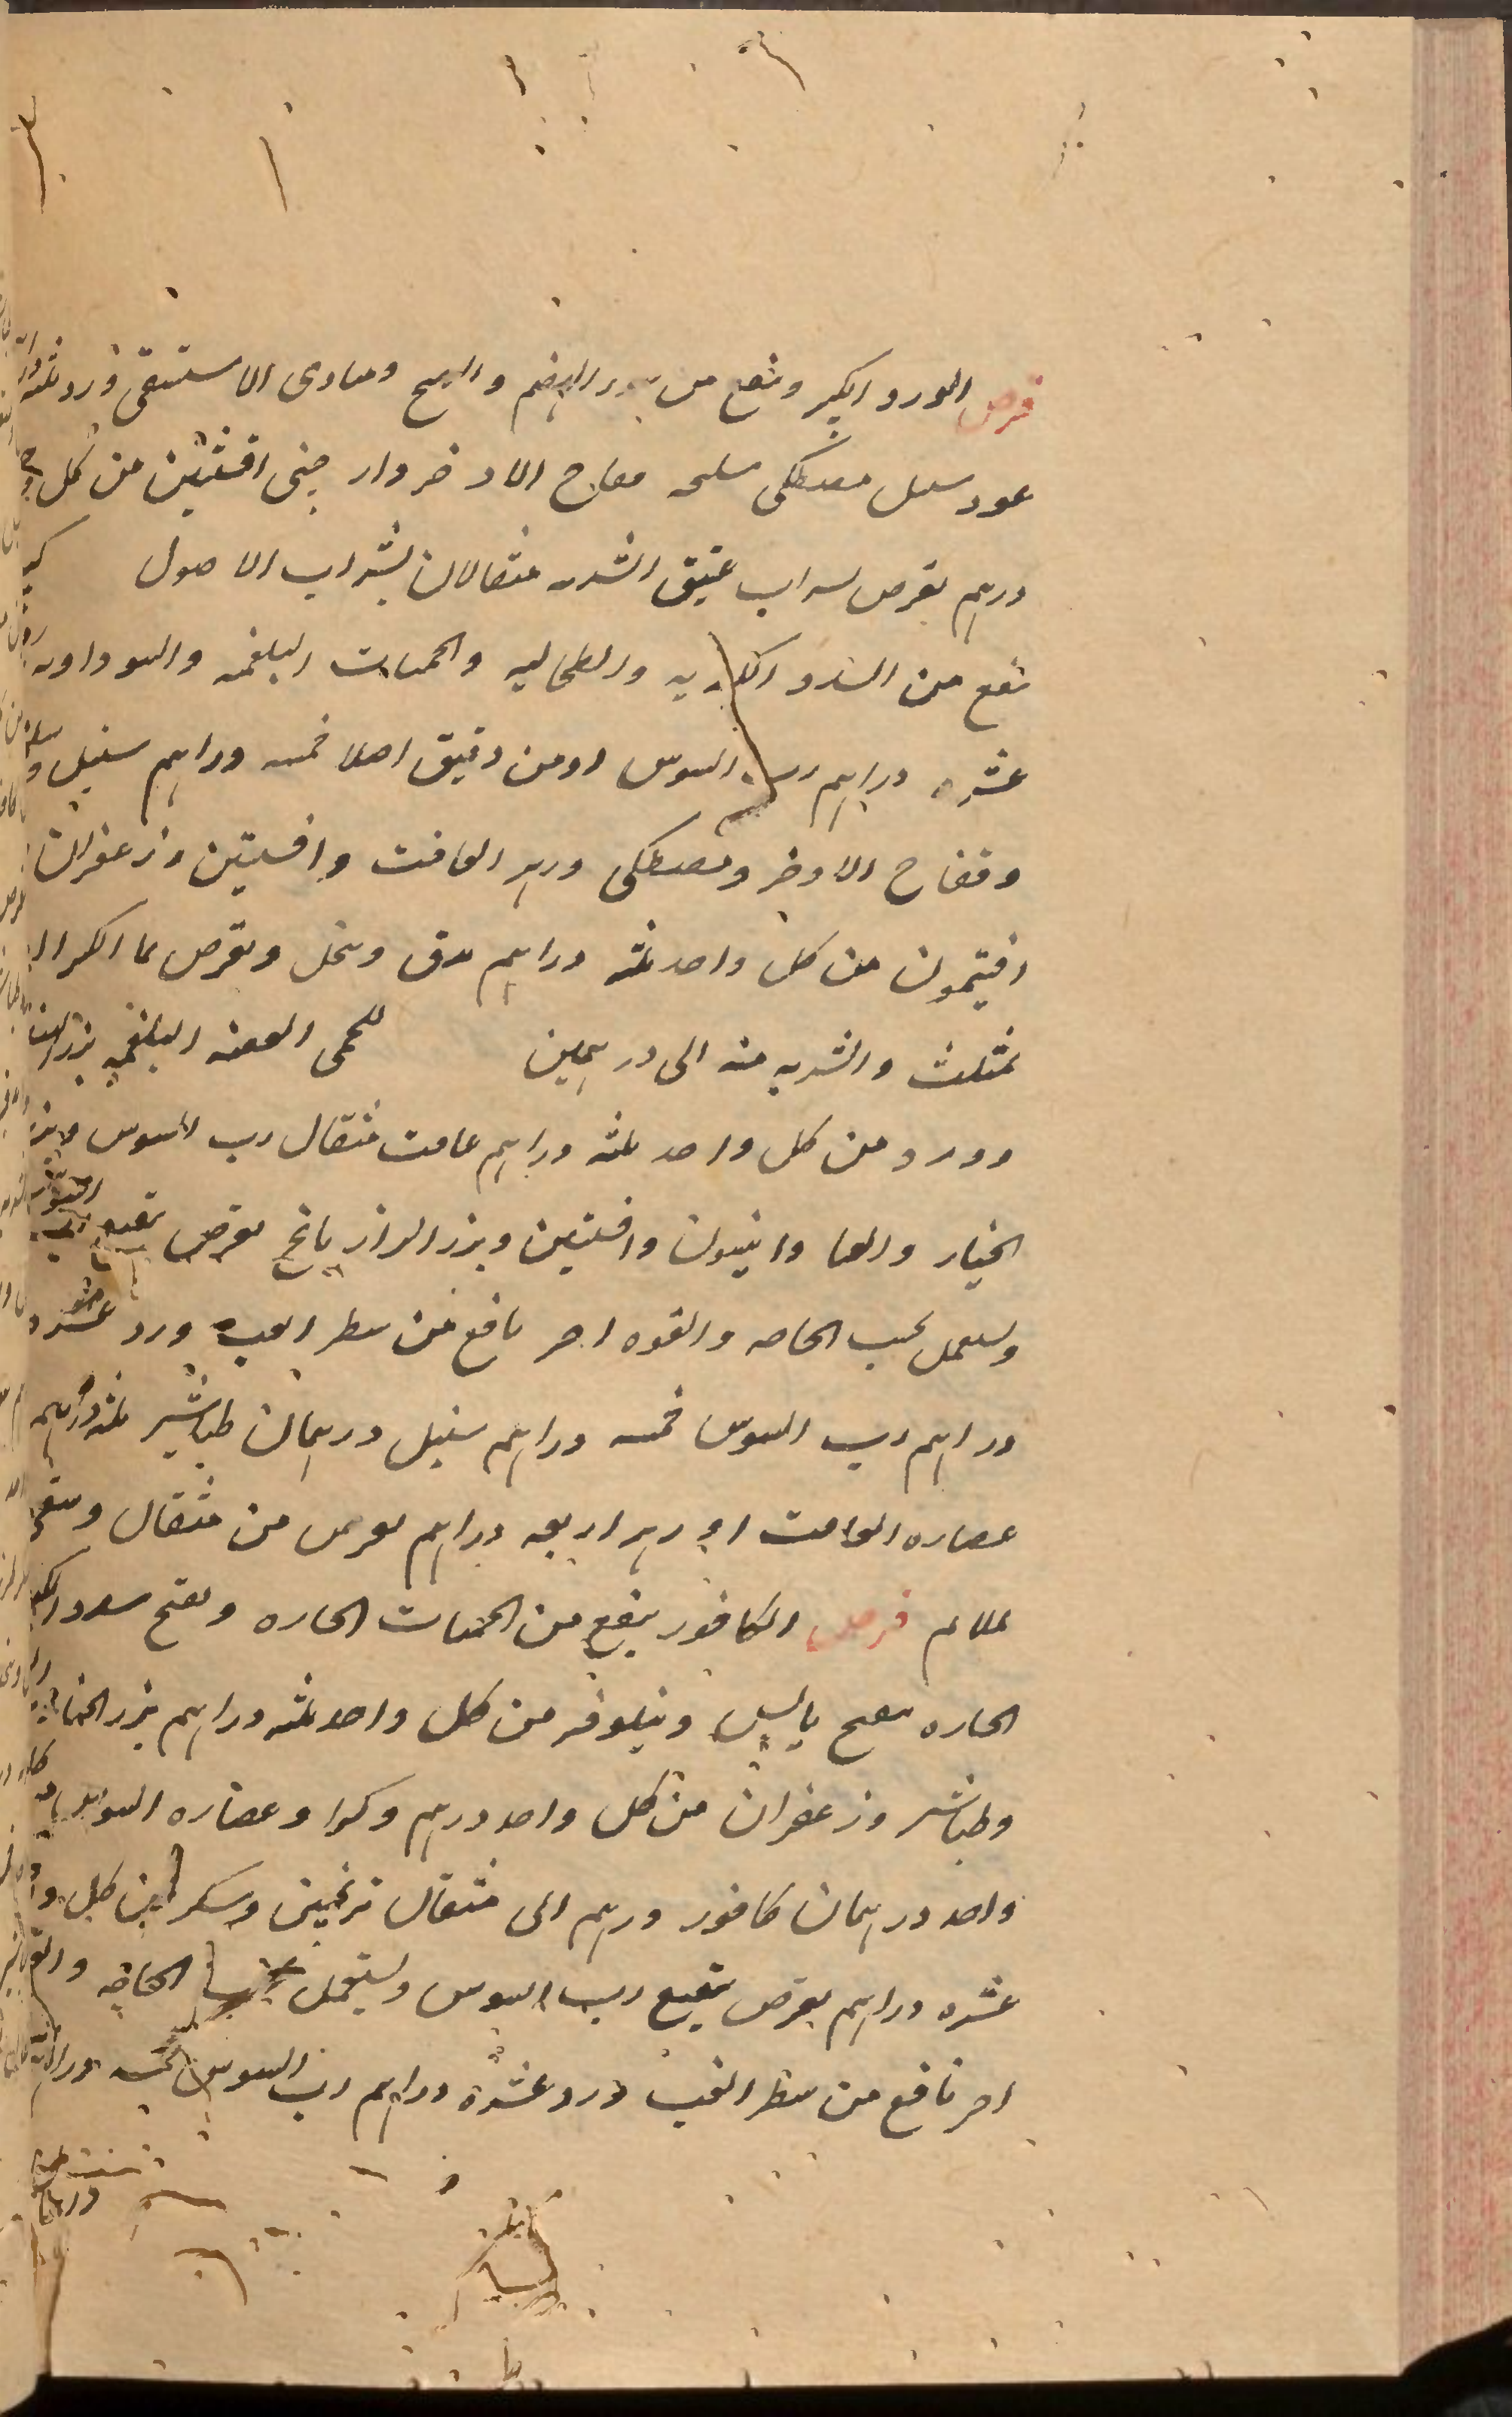 قرص الورد الكبير وينفع من برد الهضم والريح ومبادى الاستسقى ورد ثلثه
عود سنبل مصطكى سليخه فقاح الاذخر دار جينى افسنتين من كل
درهم يقرص بشراب عتيق الشربه مثقالان بشراب الاصول
ينفع من السدد الكبديه والطحاليه والحميات البلغميه والسوداويه
عشره دراهم رب السوس او من دقيق اصله خمسه دراهم سنبل
وفقاح الاذخر ومصطكى وزهر الغافت وافسنتين وزعفران
افتيمون من كل واحد ثلثه دراهم يدق وينخل ويقرص بما الكرفس او
بمثلث والشربه منه الى درهمين للحمى العفنه البلغميه بزر الهندبا
وورد من كل واحد ثلثه دراهم غافت مثقال رب السوس وبزر
الخيار والقثا وانيسون وافسنتين وبزر الرازيانج يقرص بنقيع
ويستعمل بحسب الحاجه والقوه اخر نافع من شطر الغب ورد عشره
دراهم رب السوس خمسه دراهم سنبل درهمان طباشير ثلثه دراهم
عصاره الغافت او زهر اربعه دراهم يقرص من مثقال ويسقى
بملايم قرص الكافور ينفع من الحميات الحاره ويفتح سدد الكبد
الحاره بنفسج يابس ونيلوفر من كل واحد ثلثه دراهم بزر الخيار
وطباشير وزعفران من كل واحد درهم وكثيرا وعصاره السوس من كل
واحد درهمان كافور درهم الى مثقال ترنجبين وسكر من كل واحد
عشره دراهم يقرص بنقيع رب السوس ويستعمل بحسب الحاجه والقوه
اخر نافع من شطر الغب ورد عشره دراهم رب السوس خمسه دراهم
سنبل
درهمان